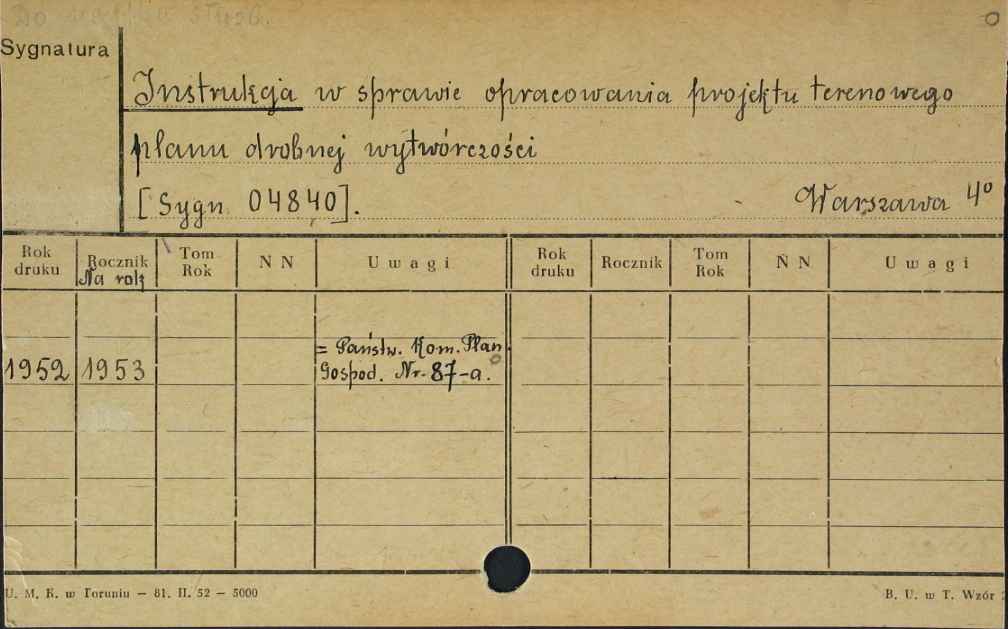 Do użytku służb.
Sygnatura
Instrukcja w sprawie opracowania projektu terenowego
planu drobnej wytwórczości
[Sygn 04840]. Warszawa 4º
Rok druku Rocznik Tom Rok N N Uwagi Rok druku Rocznik Tom Rok N N Uwagi
Na rok
= Państw. Kom. Plan.
1952 1953 Gospod. Nr. 87-a.
U. M. K. w Toruniu — 81. II. 52 — 5000 B. U. w T. Wzór